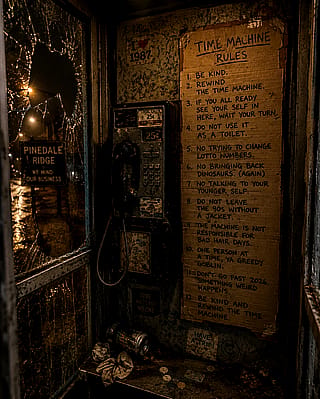 I ♥
1987
PINEDALE
RIDGE
WE MIND
OUR BUSINESS
TIME MACHINE
RULES
1. BE KIND.
2. REWIND
THE TIME MACHINE.
3. IF YOU ALL READY
SEE YOUR SELF IN
HERE, WAIT YOUR TURN.
4. DO NOT USE IT
AS A TOILET.
5. NO TRYING TO CHANGE
LOTTO NUMBERS.
6. NO BRINGING BACK
DINOSAURS. (AGAIN)
7. NO TALKING TO YOUR
YOUNGER SELF.
8. DO NOT LEAVE
THE 90S WITHOUT
A JACKET.
9. THE MACHINE IS NOT
RESPONSIBLE FOR
BAD HAIR DAYS.
10. ONE PERSON AT
A TIME, YA GREEDY
GOBLIN.
11. DON'T GO PAST 2026.
SOMETHING WEIRD
HAPPENS.
12. BE KIND AND
REWIND THE TIME
MACHINE
25¢